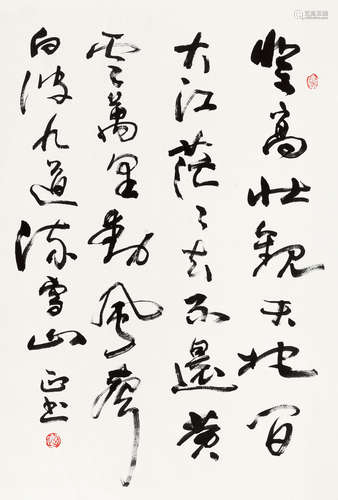 登高壮觀天地间
大江茫々去不還黄
雲萬里動風聲
白波九道流雪山 正书